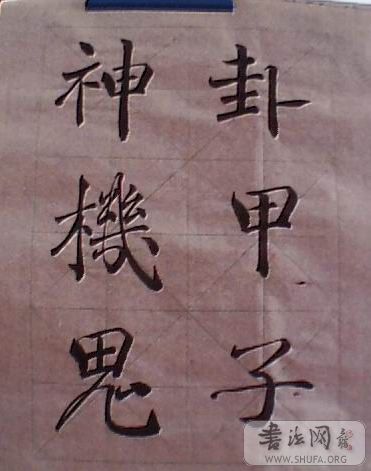 卦甲子
神機鬼
書法网
WWW.SHUFA.ORG